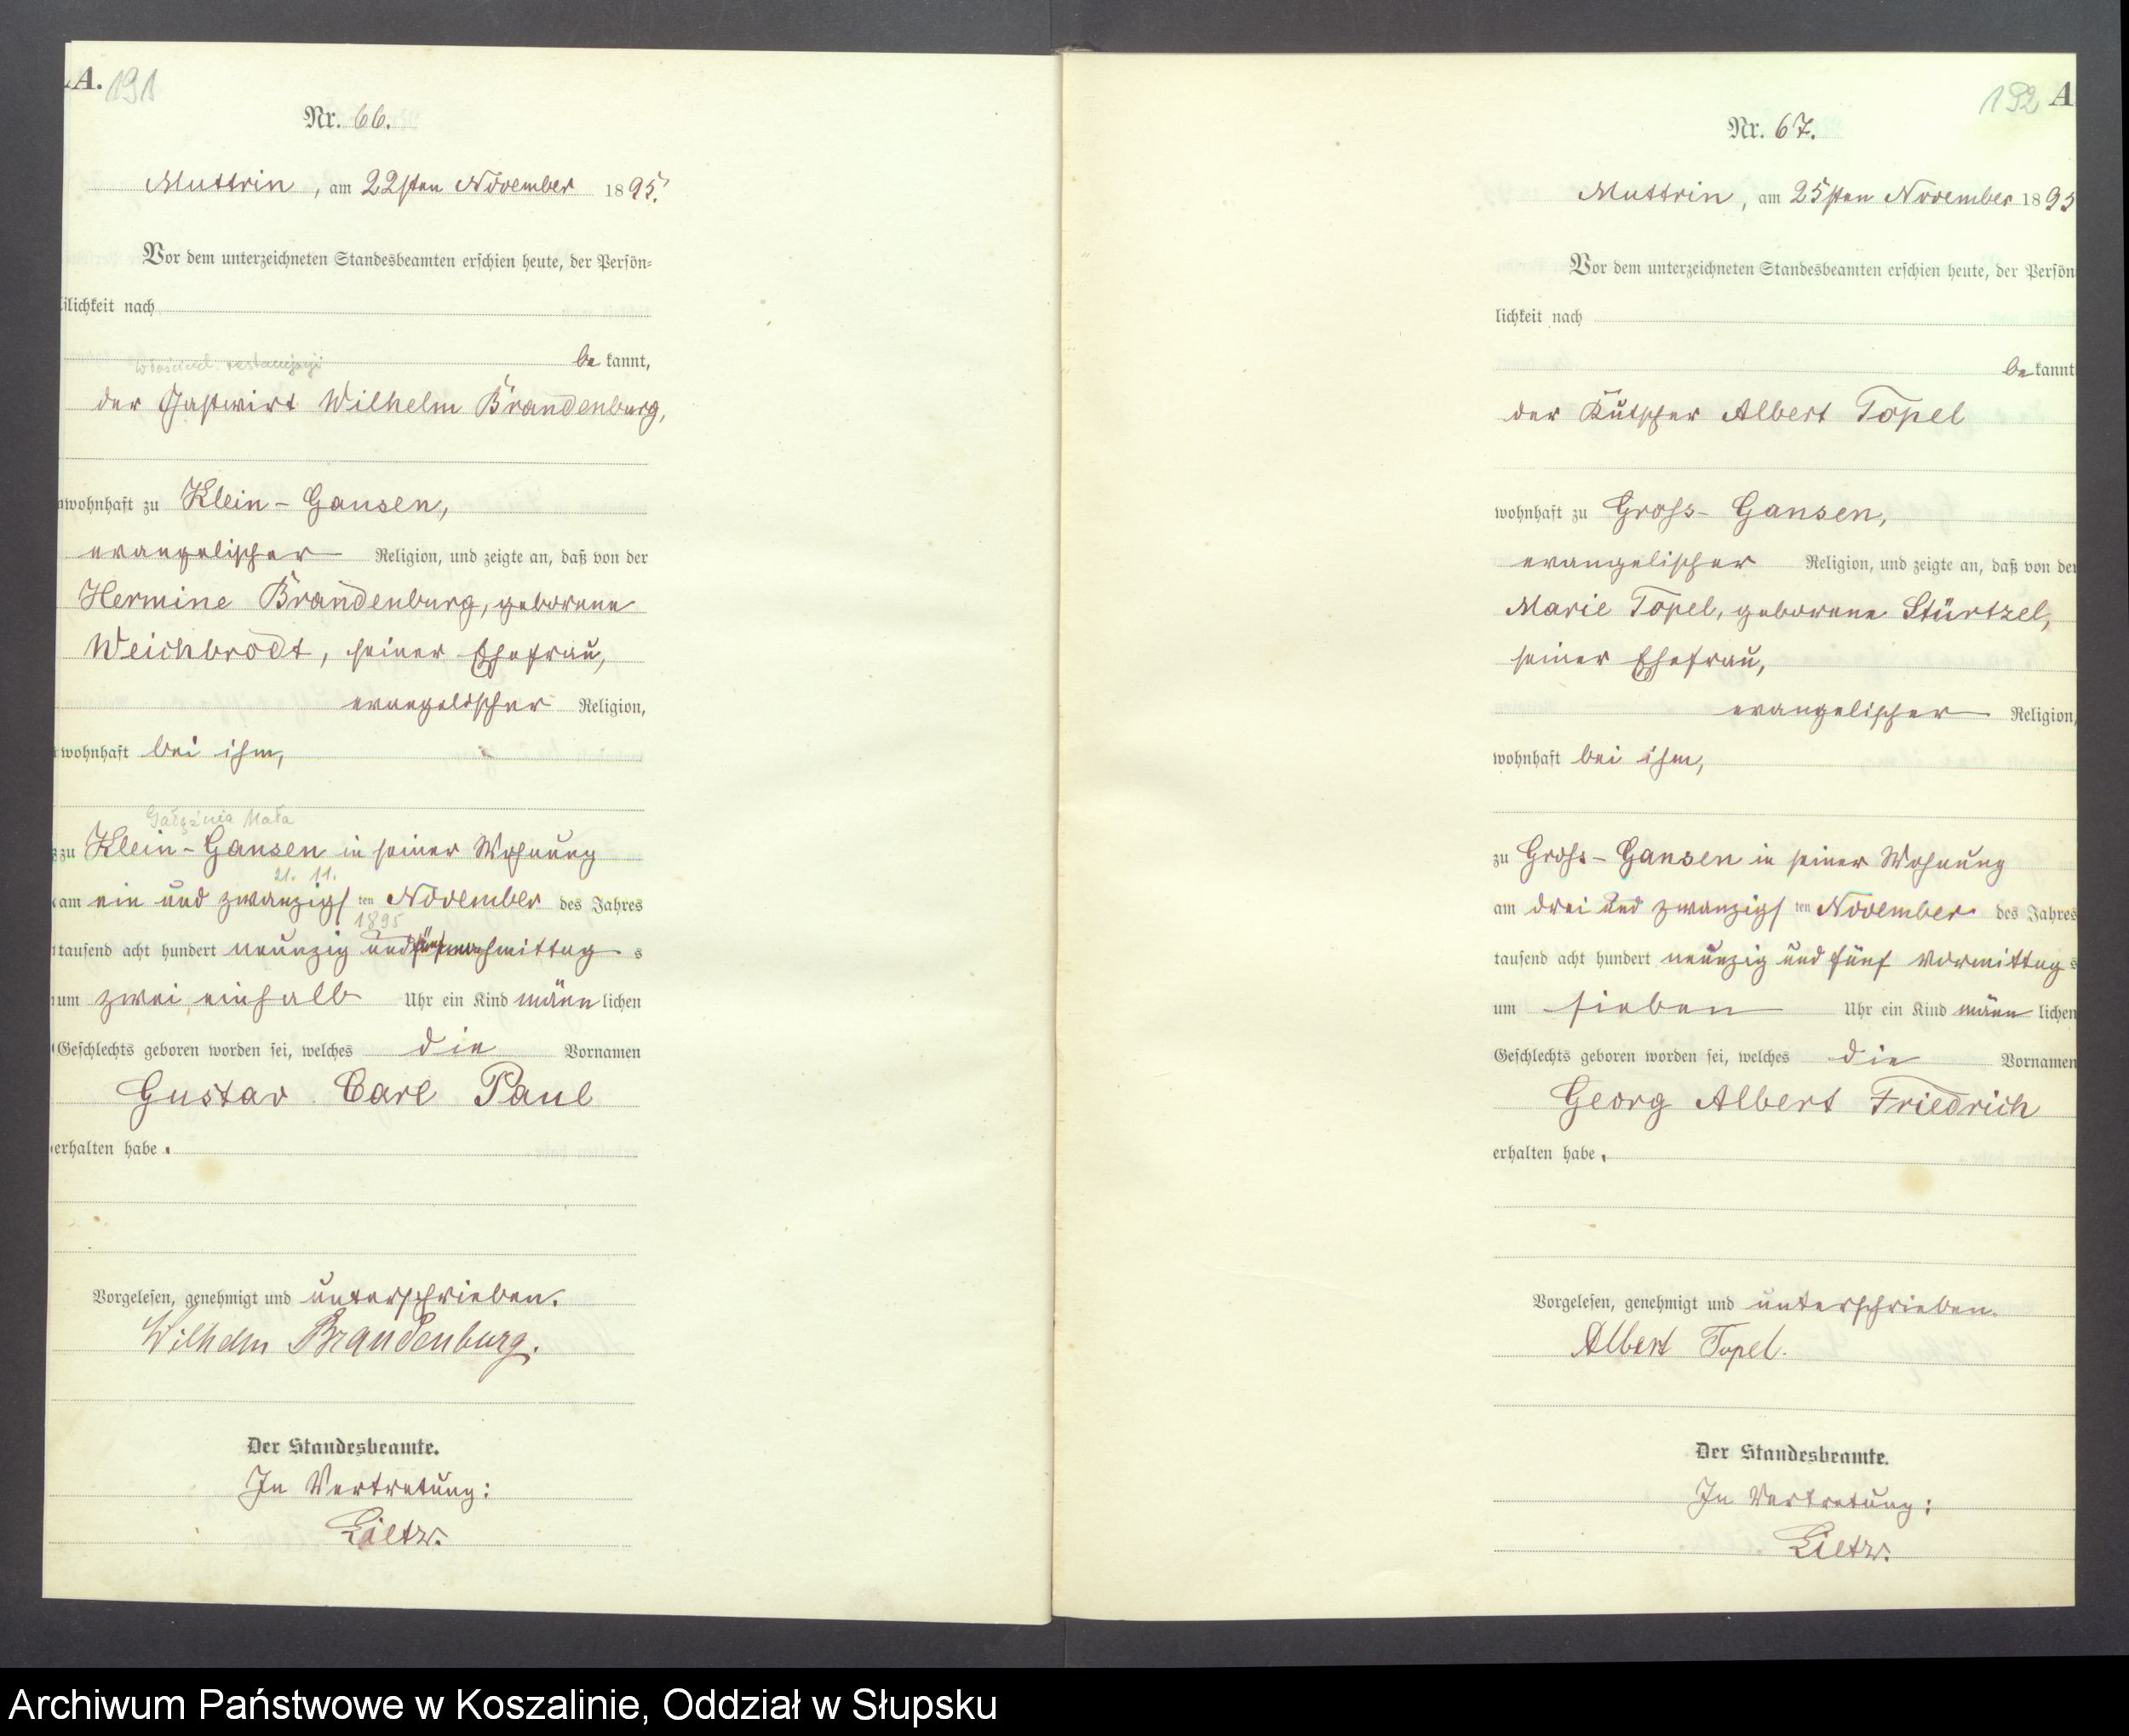 A. 191
Nr. 66.
Muttrin, am 22sten November 1895.
Vor dem unterzeichneten Standesbeamten erschien heute, der Persön=
lichkeit nach
be kannt,
der Gastwirt Wilhelm Brandenburg,
wohnhaft zu Klein-Gansen,
evangelischer Religion, und zeigte an, daß von der
Hermine Brandenburg, geborene
Weichbrodt, seiner Ehefrau,
evangelischer Religion,
wohnhaft bei ihm,
Gałąźnia Mała
zu Klein-Gansen in seiner Wohnung
21. 11.
am ein und zwanzigs ten November des Jahres
1895
tausend acht hundert neunzig und fünf nachmittag s
um zwei einhalb Uhr ein Kind männ lichen
Geschlechts geboren worden sei, welches die Vornamen
Gustav Carl Paul
erhalten habe.
Vorgelesen, genehmigt und unterschrieben.
Wilhelm Brandenburg.
Der Standesbeamte.
In Vertretung:
Lietz.
192 A
Nr. 67.
Muttrin, am 25sten November 1895
Vor dem unterzeichneten Standesbeamten erschien heute, der Persön
lichkeit nach
be kannt
der Kutscher Albert Topel
wohnhaft zu Gross-Gansen,
evangelischer Religion, und zeigte an, daß von der
Marie Topel, geborene Stürtzel,
seiner Ehefrau,
evangelischer Religion,
wohnhaft bei ihm,
zu Gross-Gansen in seiner Wohnung
am drei und zwanzigs ten November des Jahres
tausend acht hundert neunzig und fünf vormittag s
um sieben Uhr ein Kind männ lichen
Geschlechts geboren worden sei, welches die Vornamen
Georg Albert Friedrich
erhalten habe.
Vorgelesen, genehmigt und unterschrieben.
Albert Topel.
Der Standesbeamte.
In Vertretung:
Lietz.
Archiwum Państwowe w Koszalinie, Oddział w Słupsku